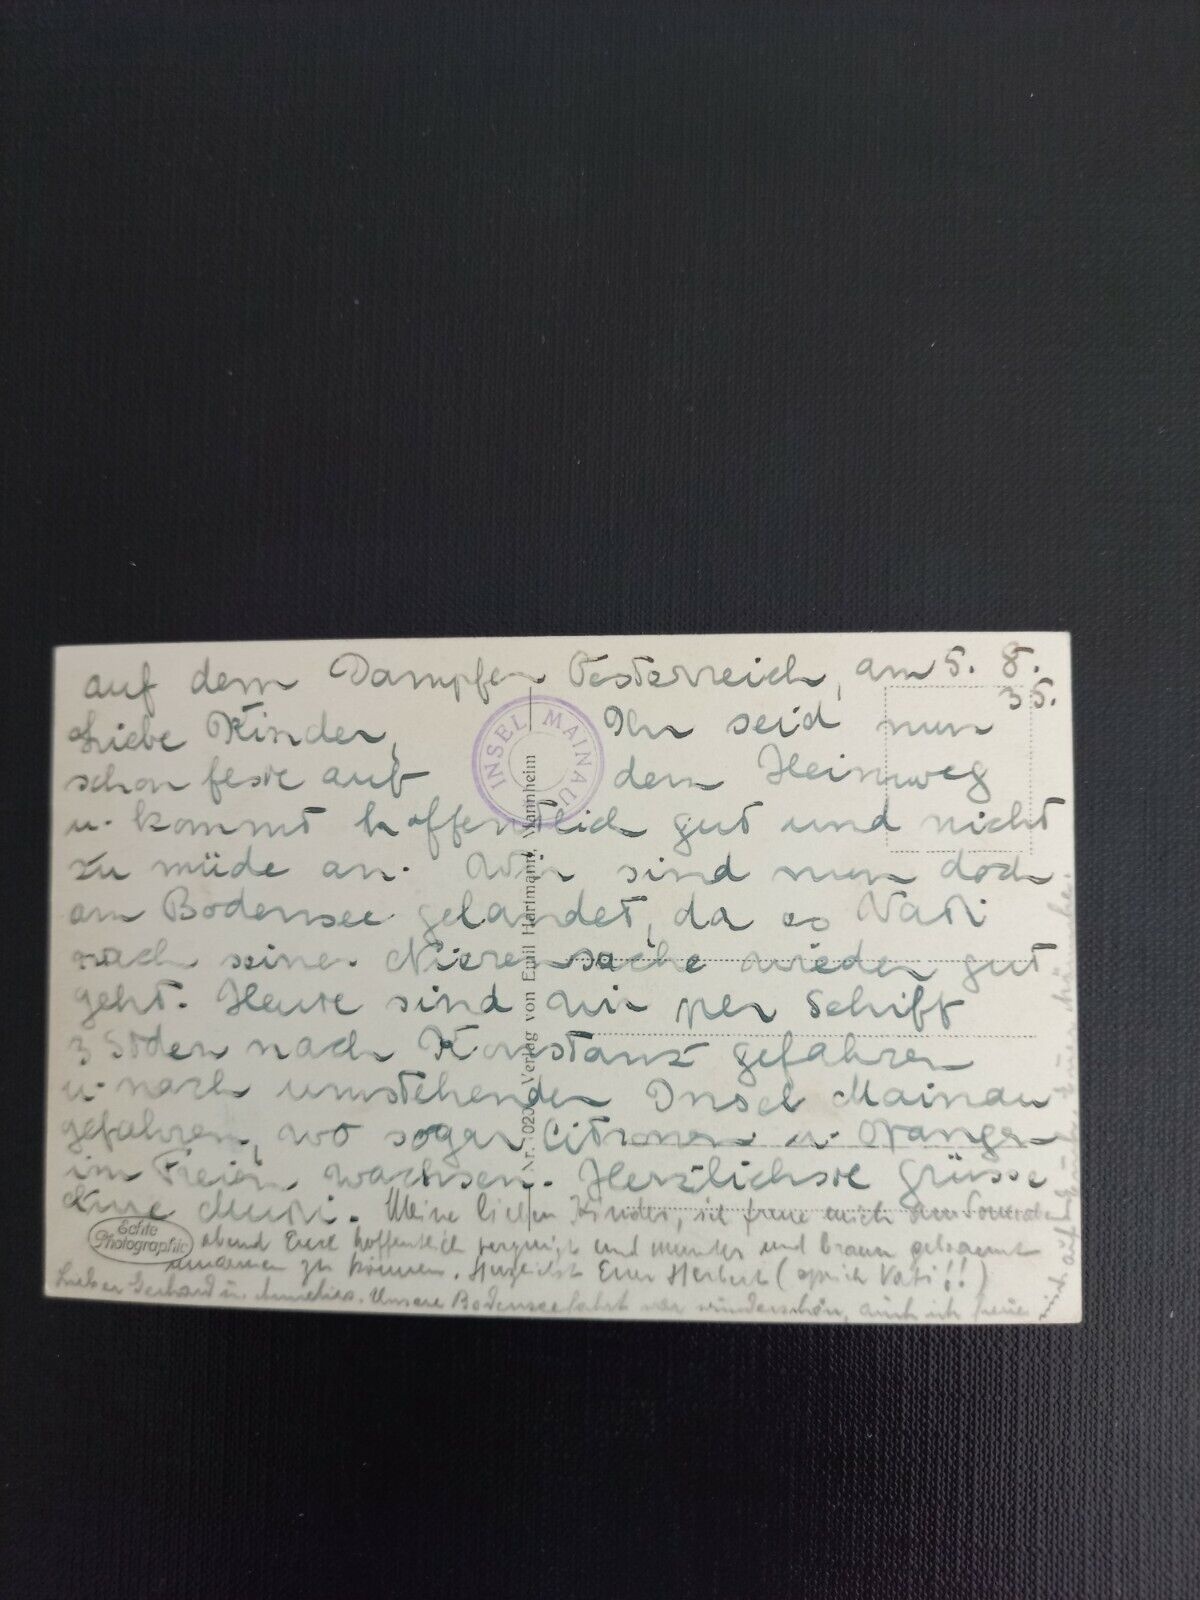 auf dem Dampfer Oesterreich, am 5. 8.
35.
Liebe Kinder, Ihr seid nun
schon feste auf dem Heimweg
u. kommt hoffentlich gut und nicht
zu müde an. Wir sind nun doch
am Bodensee gelandet, da es Vati
nach seiner Nierensache wieder gut
geht. Heute sind wir per Schiff
3 Stden nach Konstanz gefahren
u. nach umstehender Insel Mainau
gefahren, wo sogar Citronen u. Orangen
im Freien wachsen. Herzlichste Grüsse
Eure Mutti. Meine lieben Kinder, ich freue mich am
abend Euch hoffentlich vergnügt und munter und braun gebrannt
zu können. Herzlichst Euer Herbert (sprich Vati!!)
Lieber Gerhard u. Annelies. Unsere Bodenseefahrt war wunderschön, auch ich freue
mich auf
INSEL MAINAU
Echte
Photographie
Verlag von Emil Hartmann, Mannheim